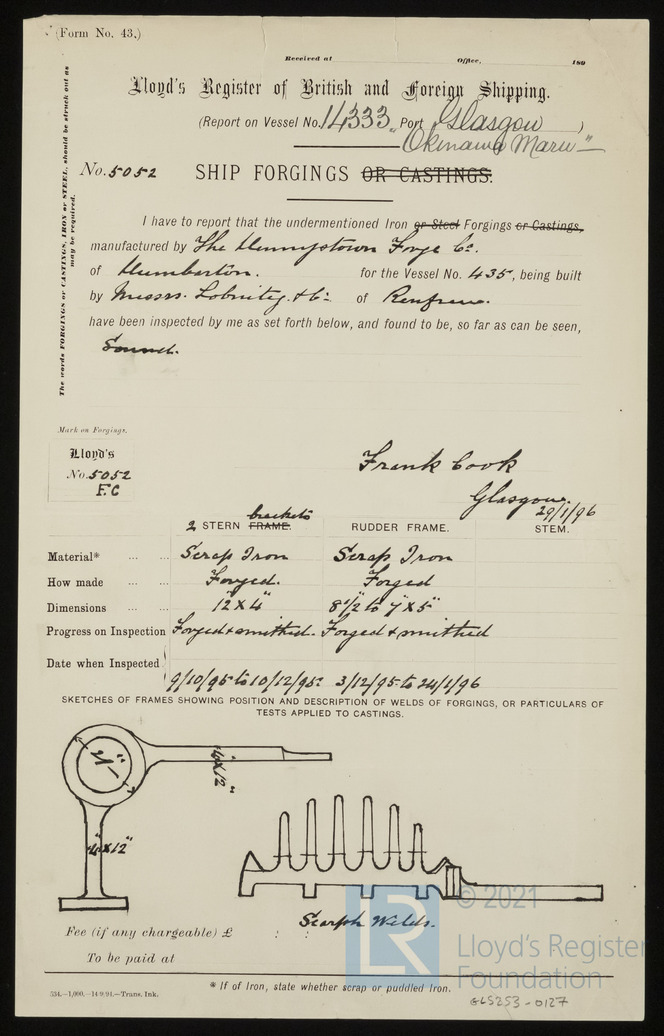 (Form No. 43.)
Received at Office, 189
Lloyd's Register of British and Foreign Shipping.
(Report on Vessel No. 14333, Port Glasgow )
Okinawa Maru"
No. 5052 SHIP FORGINGS OR CASTINGS.
The words FORGINGS or CASTINGS, IRON or STEEL, should be struck out as
may be required.
I have to report that the undermentioned Iron or Steel Forgings or Castings,
manufactured by The Dennystown Forge Co.
of Dumbarton. for the Vessel No. 435, being built
by Messrs. Lobnitz & Co of Renfrew.
have been inspected by me as set forth below, and found to be, so far as can be seen,
Sound.
Mark on Forgings.
Lloyd's
No. 5052
F.C
Frank Cook
Glasgow.
29/1/96
brackets
2 STERN FRAME. RUDDER FRAME. STEM.
Material* ... ... Scrap Iron Scrap Iron
How made ... ... Forged. Forged
Dimensions ... ... 12"x4" 8½" to 7"x5"
Progress on Inspection Forged & smithed. Forged & smithed
Date when Inspected
9/10/95 to 10/12/95 3/12/95 to 24/1/96
SKETCHES OF FRAMES SHOWING POSITION AND DESCRIPTION OF WELDS OF FORGINGS, OR PARTICULARS OF
TESTS APPLIED TO CASTINGS.
4"x12"
4"x12"
Scarph Welds.
Fee (if any chargeable) £ : :
To be paid at
* If of Iron, state whether scrap or puddled Iron.
534.—1,000.—14·9·94.—Trans. Ink.
GLS253-0127
LR
© 2021
Lloyd's Register
Foundation